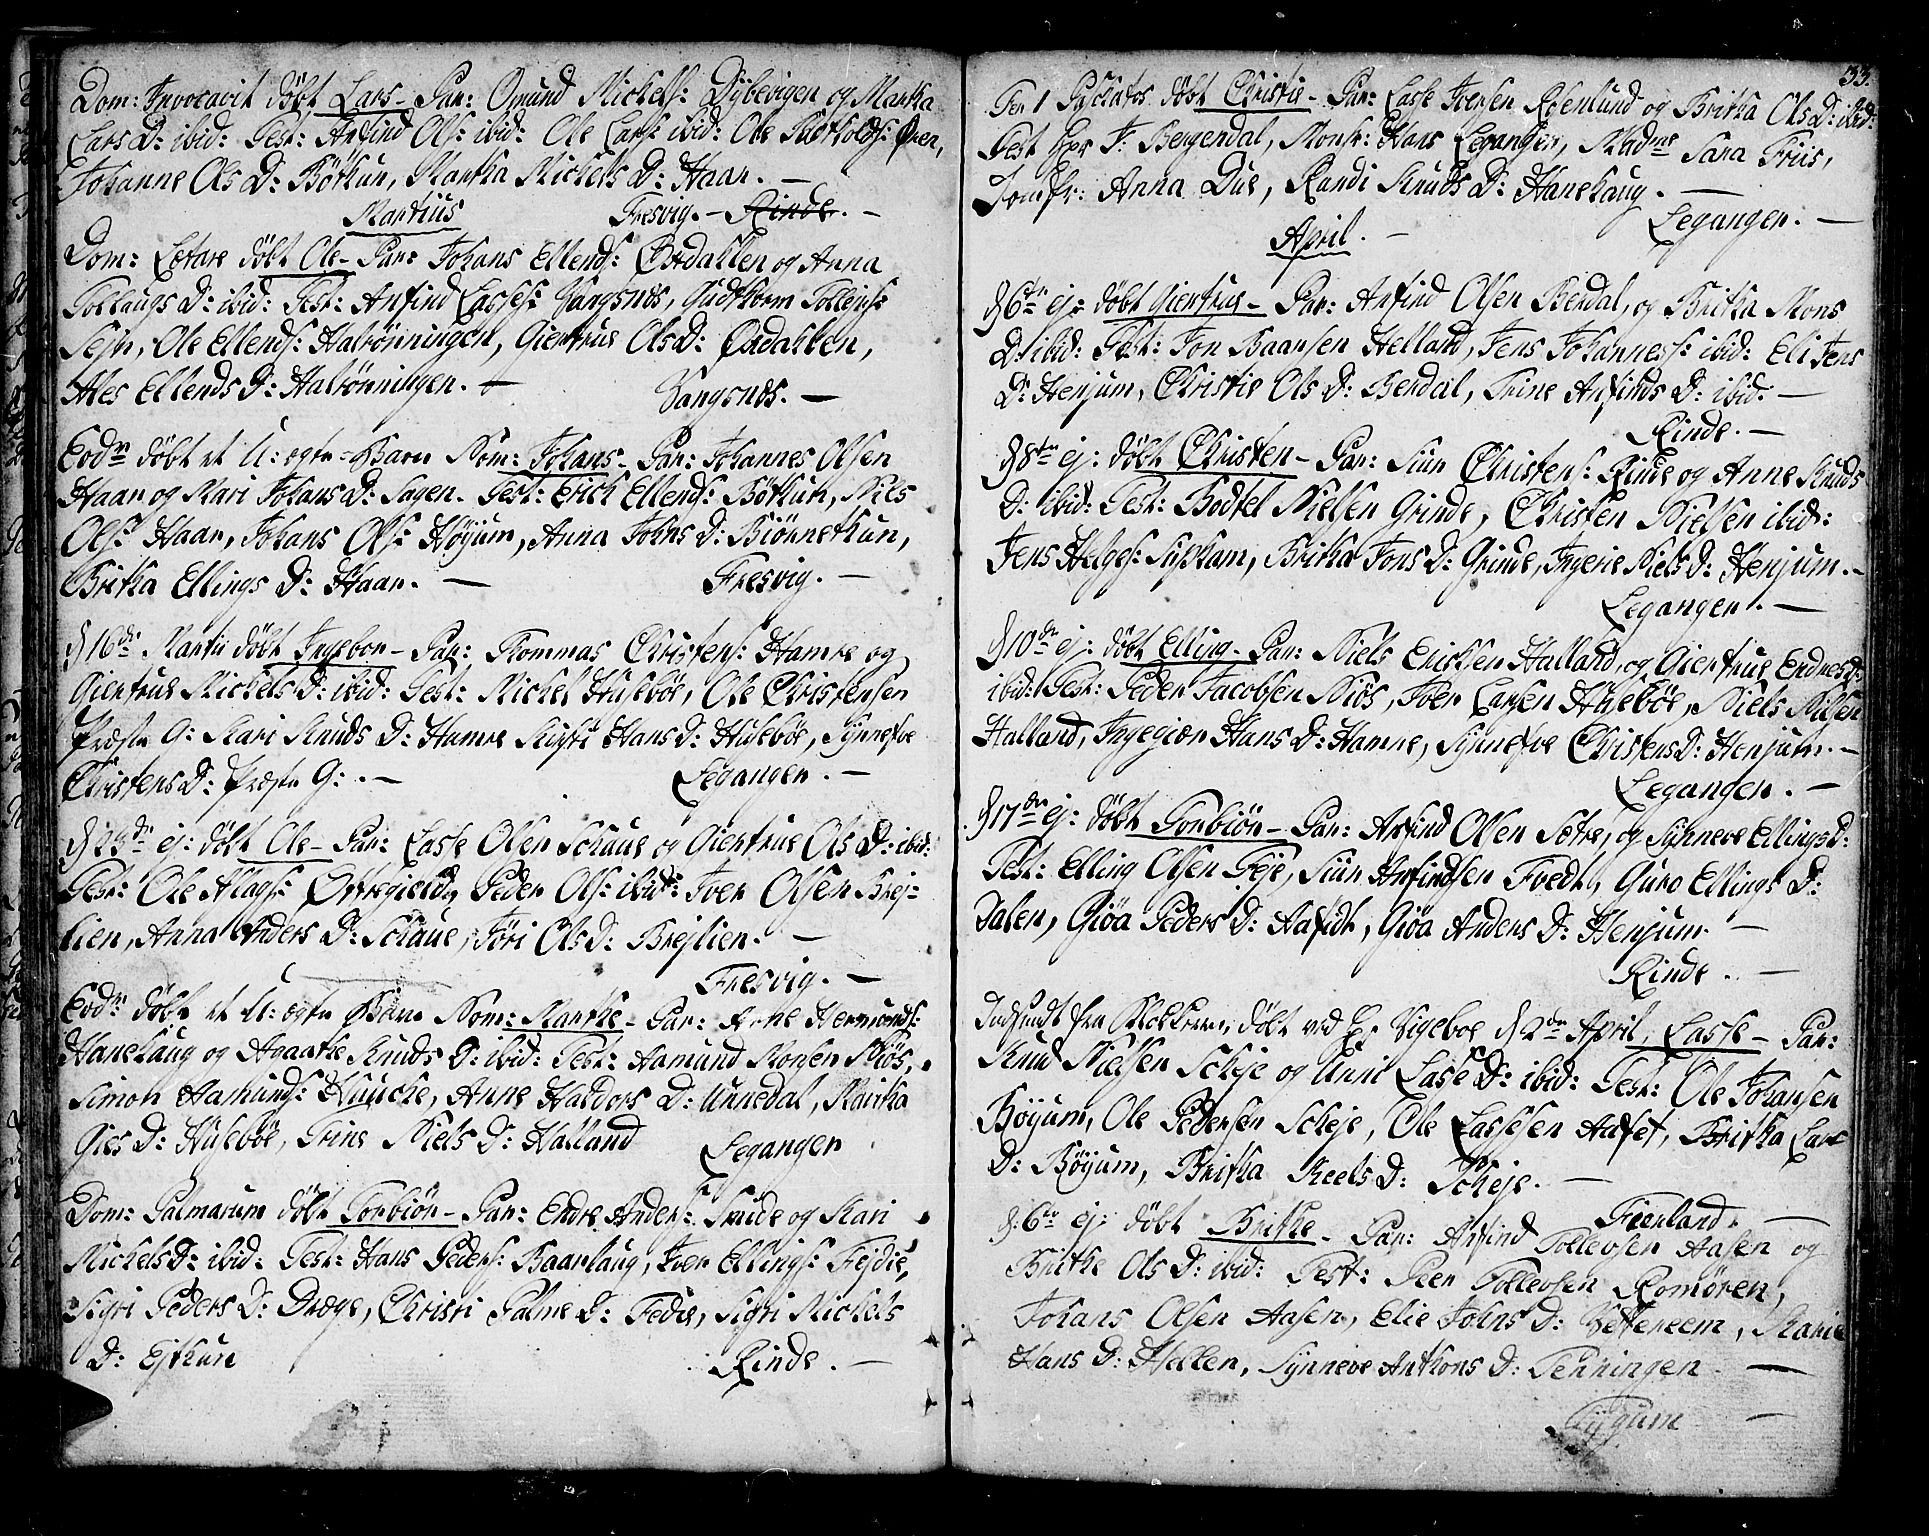 Dom: Invocavit døbt Lars - Par: Omund Mickels: Dybevigen og Martha
Lars D: ibid: Test: Anfind Ols: ibid: Ole Lars: ibid: Ole Øren,
Johanne Ols D: Böthun, Martha Mickels D: Haar. -
Martius Fresvig. - Rinde. -
Dom: Letare døbt Ole - Par: Johans Ellends: Ørdahlen og Anna
Tollaugs D: ibid: Test: Anfind Lasses: Vangsnøs, Gudthorm Tollejfs:
Sejn, Ole Ellends: Halvönningen, Giertrue Ols D: Ørdahlen,
Ales Ellends D: Halvönningen. - Vangsnøs. -
Eod døbt et U: ogte Barn Nom: Johans - Par: Johannes Olsen
Haar og Mari Johans D: Sagen. Test: Erich Ellends: Böthun, Niels
Ols: Haar, Johans Ols: Høyum, Anna Johns D: Biönnethun,
Britha Ellings D: Haar. - Fresvig. -
d 16de Martii døbt Ingebor - Par: Thommas Christens: Hamre og
Giertrue Mickels D: ibid: Test: Mickel Husebøe, Ole Christensen
Præste G: Kari Knuds D: Hamre Hans D: Husebøe, Synnefve
Christens D: Præste G: . - Legangen. -
d 23de ej: døbt Ole - Par: Lasse Olsen Schaue og Giertrue Ols D: ibid:
Test: Ole Alags: Peder Ols: ibid: Iver Olsen Brej-
lien, Anna Anders D: Schaue, Jöri Ols D: Brejlien. -
Fresvig. -
Eod døbt et U: ogte Barn Nom: Marthe - Par: Arne Hermunds:
Hanehaug og Agaathe Knuds D: ibid: Test: Aamund Monsen Niøs,
Simon Aamunds: Hauche, Anne Haldors D: Unnedal, Maritha
Gies D: Husebøe, Trine Niels D: Halland Legangen
Dom: Palmarum døbt Torbiör - Par: Endre Anders: Tinde og Kari
Mickels D: ibid: Test: Hans Peders: Baarlaug, Iver Ellings: Fejdie,
Sigri Peders D: Drege, Christi Palme D: Fedie, Sigri Mickels
D: Ejthun Rinde. -
33.
Fer 1 Paschatos døbt Christie - Par: Lasse Iversen Rosenlund og Britha Ols D: ibid:
Test Hr: J: Bergendal, Monsr: Hans Legangen, Madme Sara Friis,
Jomfr: Anna Due, Randi Knuds D: Hanehaug. -
Legangen. -
April. -
d 6te ej: døbt Giertrue - Par: Anfind Olsen Berdal, og Britha Mons
D: ibid: Test: Jon Baarsen Helland, Jens Johanness: ibid: Eli Jens
D: Henjum, Christie Ols D: Berdal, Trine Anfinds D: ibid. -
Rinde. -
d 8te ej: døbt Christen - Par: Siur Christens: Rinde og Anne Knuds
D: ibid: Test: Bodtel Nielsen Grinde, Christen Nielsen ibid:
Jens Helges: Britha Jons D: Grinde, Ingerie Niels D: Henjum. -
Legangen. -
d 10de ej: døbt Elling - Par: Niels Erichsen Halland, og Giertrue Endres D:
ibid: Test: Peder Jacobsen Niøs, Iver Larsen Husebøe, Niels Nilsen
Halland, Ingegier Hans D: Hamre, Synnefve Christens D: Henjum. -
Legangen. -
d 17de ej: døbt Torbiör - Par: Anfind Olsen Sætre, og Synneve Ellings D:
Test: Elling Olsen Feje, Siur Anfindsen Tvedt, Guro Ellings D:
Dalen, Giöa Peders D: Giöa Anders D: Henjum -
Rinde. -
Indsendt fra døbt ved Hr Vigeboe d 2den April, Lasse - Par:
Knud Nielsen Scheje og Unni Lasse D: ibid: Test: Ole Johansen
Bøyum, Ole Pedersen Scheje, Ole Lassesen Aafet, Britha Lars
D: Bøyum, Britha Neels D: Scheje. -
Fierland. -
d: 6te ej: døbt Brithe - Par: Anfind Tollevsen Aasen og
Brithe Ols D: ibid: Test: Peer Tollevsen Romören,
Johans Olsen Aasen, Elie Johns D: Vettereem, Marie
Hans D: Hellen, Synneve Anthons D: Tenningen -
Tygum -